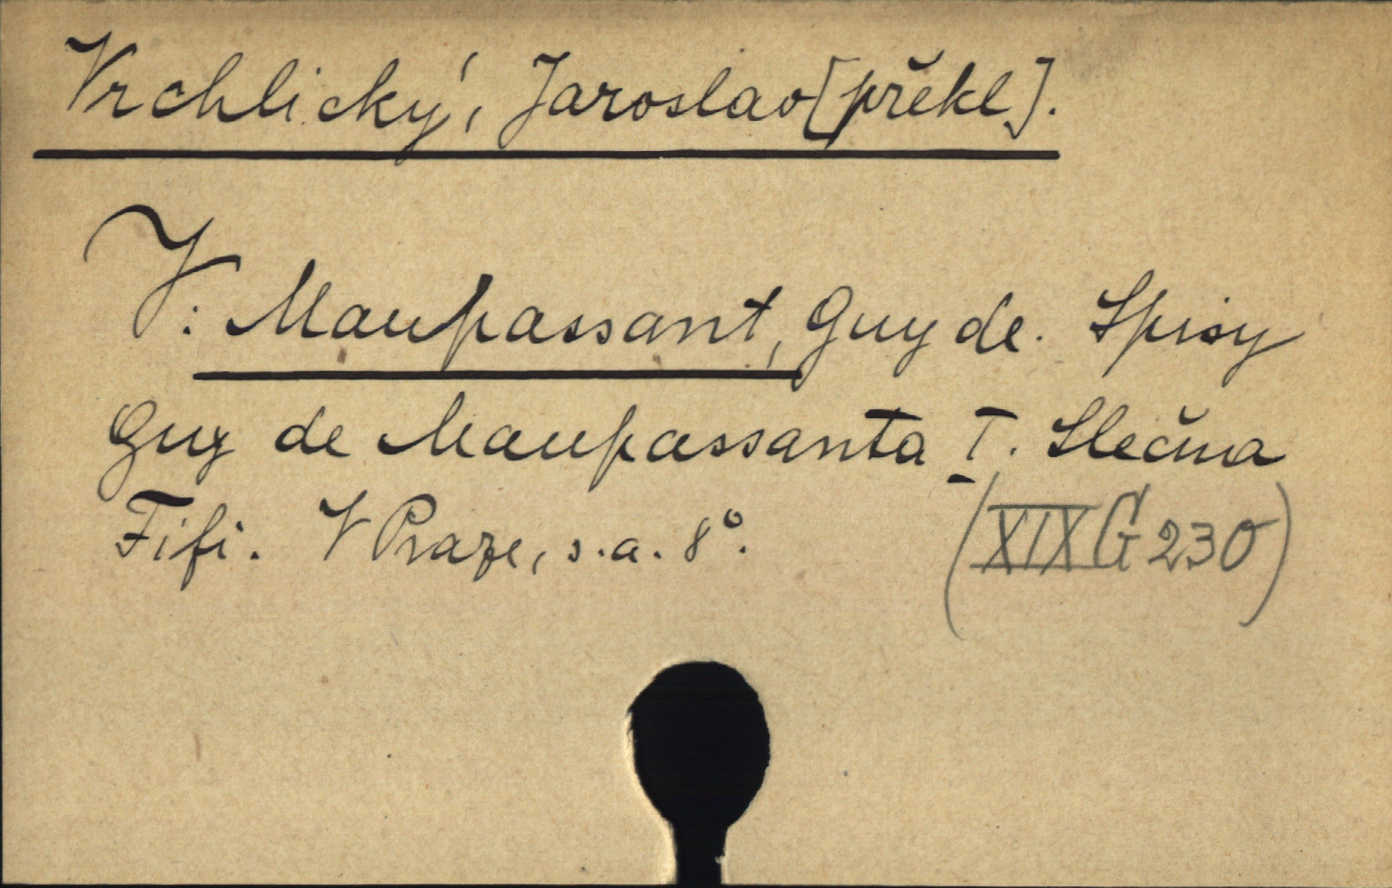 Vrchlický, Jaroslav [překl.].
V: Maupassant, Guy de. Spisy
Guy de Maupassanta I. Slečna
Fifi. V Praze, s.a. 8°.
(XIX G 230)